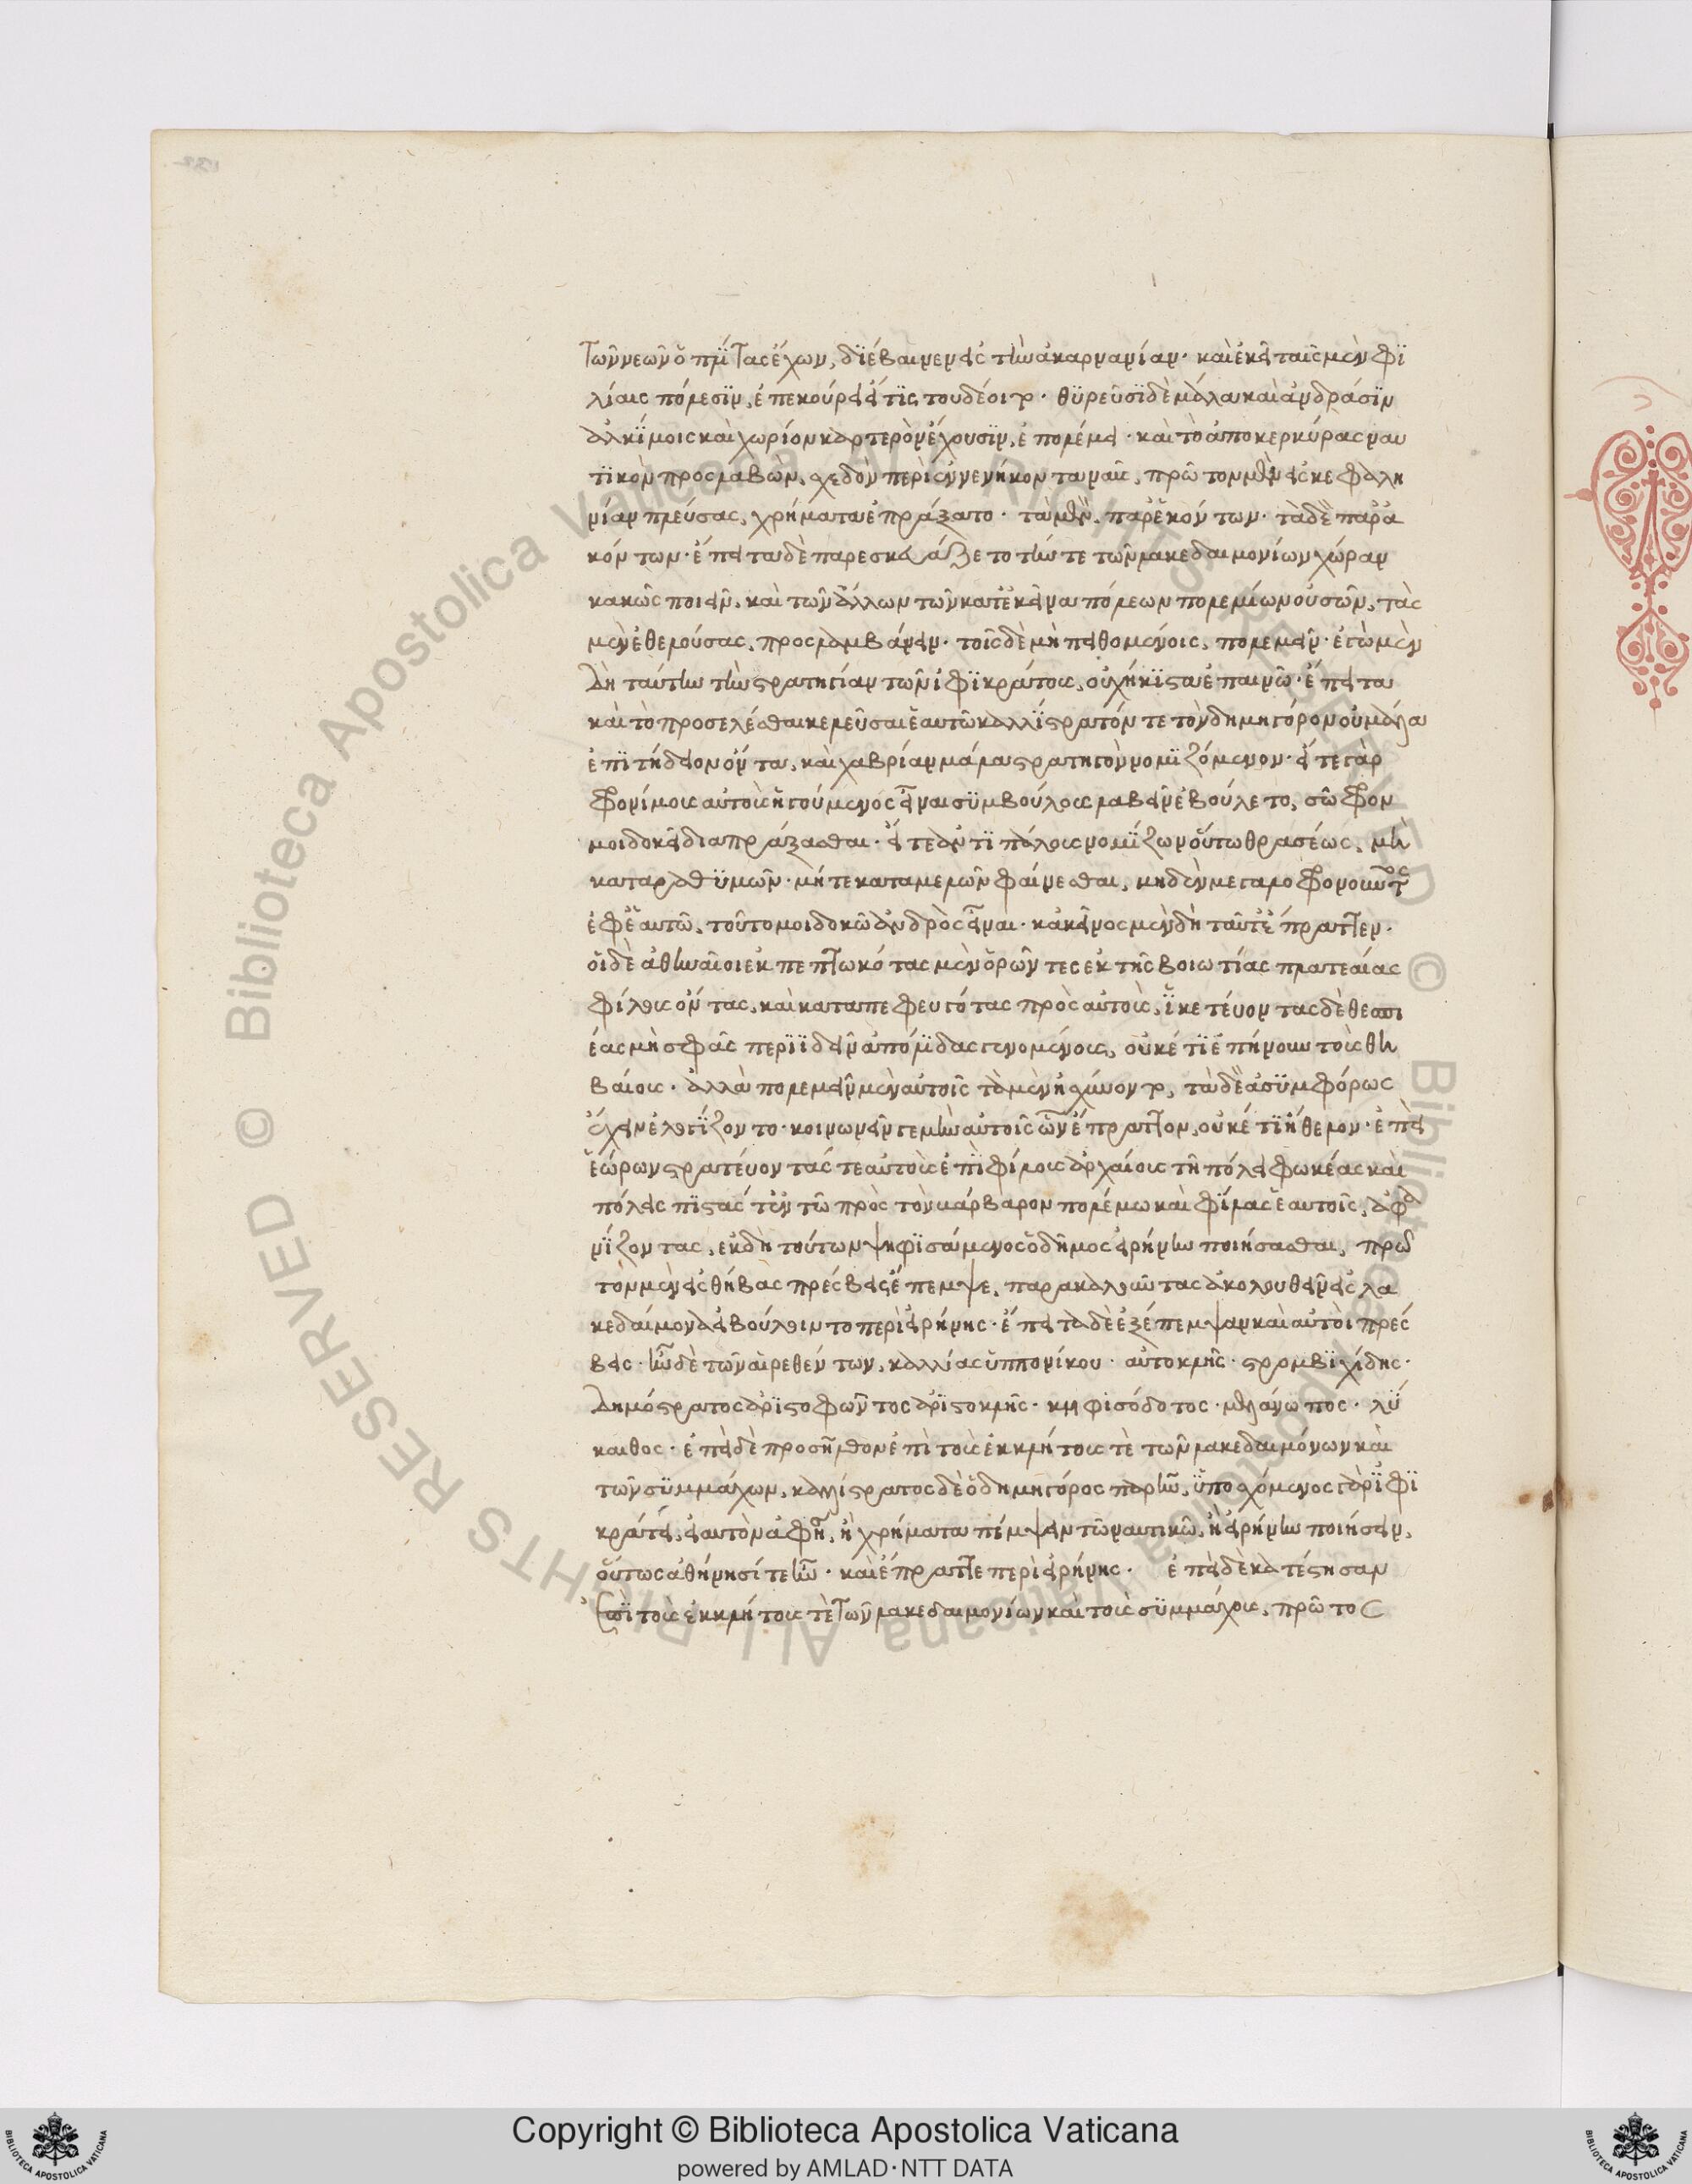 τῶν νεῶν ὁπλίτας ἔχων, διέβαινεν εἰς τὴν ἀκαρνανίαν· καὶ ἐκεῖ ταῖς μὲν φι
λίαις πόλεσιν, ἐπεκούρει εἴ τις του δέοιτο· θυρεῦσι δὲ μάλα καὶ ἀνδράσιν
ἀλκίμοις καὶ χωρίον καρτερὸν ἔχουσιν, ἐπολέμει· καὶ τὸ ἀπὸ κερκύρας ναυ
τικὸν προσλαβὼν, σχεδὸν περὶ ἐννενήκοντα ναῦς, πρῶτον μὲν εἰς κεφαλη
νίαν πλεύσας, χρήματα ἐπράξατο· τὰ μὲν, παρ' ἑκόντων· τὰ δὲ παρ' ἀ
κόντων· ἔπειτα δὲ παρεσκευάζετο τήν τε τῶν λακεδαιμονίων χώραν
κακῶς ποιεῖν, καὶ τῶν ἄλλων τῶν κατ' ἐκεῖνα πόλεων πολεμίων οὐσῶν, τὰς
μὲν ἐθελούσας, προσλαμβάνειν· τοῖς δὲ μὴ πειθομένοις, πολεμεῖν· ἐγὼ μὲν
δὴ ταύτην τὴν στρατηγίαν τῶν ἰφικράτους, οὐχ ἥκιστα ἐπαινῶ· ἔπειτα
καὶ τὸ προσελέσθαι κελεῦσαι ἑαυτῷ καλλίστρατόν τε τὸν δημηγόρον οὐ μάλα
ἐπιτήδειον ὄντα, καὶ χαβρίαν μάλα στρατηγὸν νομιζόμενον· εἴτε γὰρ
φρονίμους αὐτοὺς ἡγούμενος εἶναι συμβούλους λαβεῖν ἐβούλετο, σῶφρον
μοι δοκεῖ διαπράξασθαι· εἴτε ἀντιπάλους νομίζων οὕτω θρασέως, μὴ
καταρραθυμῶν· μήτε καταμελῶν φαίνεσθαι, μηδὲν μεγαλοφρονοῦντος
ἐφ' ἑαυτῷ, τοῦτό μοι δοκῶ ἀνδρὸς εἶναι· κἀκεῖνος μὲν δὴ ταῦτ' ἔπραττεν.
οἱ δὲ ἀθηναῖοι ἐκπεπτωκότας μὲν ὁρῶντες ἐκ τῆς βοιωτίας πλαταιέας
φίλους ὄντας, καὶ καταπεφευγότας πρὸς αὐτοὺς, ἱκετεύοντας δὲ θεσπι
έας μὴ σφᾶς περιιδεῖν ἀπόλιδας γενομένους, οὐκέτι ἐπῄνουν τοὺς θη
βαίους· ἀλλὰ πολεμεῖν μὲν αὐτοῖς τὰ μὲν ᾐσχύνοντο, τὰ δὲ ἀσυμφόρως
ἔχειν ἐλογίζοντο· κοινωνεῖν γε μὴν αὐτοῖς ὧν ἔπραττον, οὐκέτι ἤθελον· ἐπεὶ
ἑώρων στρατεύοντάς τε αὐτοὺς ἐπὶ φίλους ἀρχαίους τῇ πόλει φωκέας καὶ
πόλεις πιστάς τ' ἐν τῷ πρὸς τὸν βάρβαρον πολέμῳ καὶ φίλας ἑαυτοῖς, ἀφα
νίζοντας, ἐκ δὴ τούτων ψηφισάμενος ὁ δῆμος εἰρήνην ποιήσασθαι, πρῶ
τον μὲν εἰς θήβας πρέσβεις ἔπεμψε, παρακαλοῦντας ἀκολουθεῖν εἰς λα
κεδαίμονα εἰ βούλοιντο περὶ εἰρήνης· ἔπειτα δὲ ἐξέπεμψαν καὶ αὐτοὶ πρέσ
βεις· ἦν δὲ τῶν αἱρεθέντων, καλλίας ἱππονίκου· αὐτοκλῆς· στρομβιχίδης·
δημόστρατος ἀριστοφῶντος ἀριστοκλῆς· κηφισόδοτος· μελάνωπος· λύ
καιθος· ἐπεὶ δὲ προσῆλθον ἐπὶ τοὺς ἐκκλήτους τὲ τῶν λακεδαιμόνων καὶ
τῶν συμμάχων, καλλίστρατος δὲ ὁ δημηγόρος παρῆν, ὑποσχόμενος γὰρ ἰφι
κράτει, εἰ αὐτὸν ἀφῇ, ἢ χρήματα πέμψειν τῷ ναυτικῷ, ἢ εἰρήνην ποιήσειν,
οὕτως ἀθήνησί τε ἦν· καὶ ἔπραττε περὶ εἰρήνης· ἐπεὶ δὲ κατέστησαν
ἐπὶ τοὺς ἐκκλήτους τὲ τῶν λακεδαιμονίων καὶ τοὺς συμμάχους, πρῶτος
Copyright © Biblioteca Apostolica Vaticana
powered by AMLAD·NTT DATA